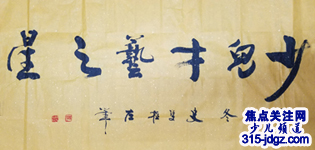 少儿才藝之星
冬
左筆
焦点关注网
少儿频道
315-jdgz.com